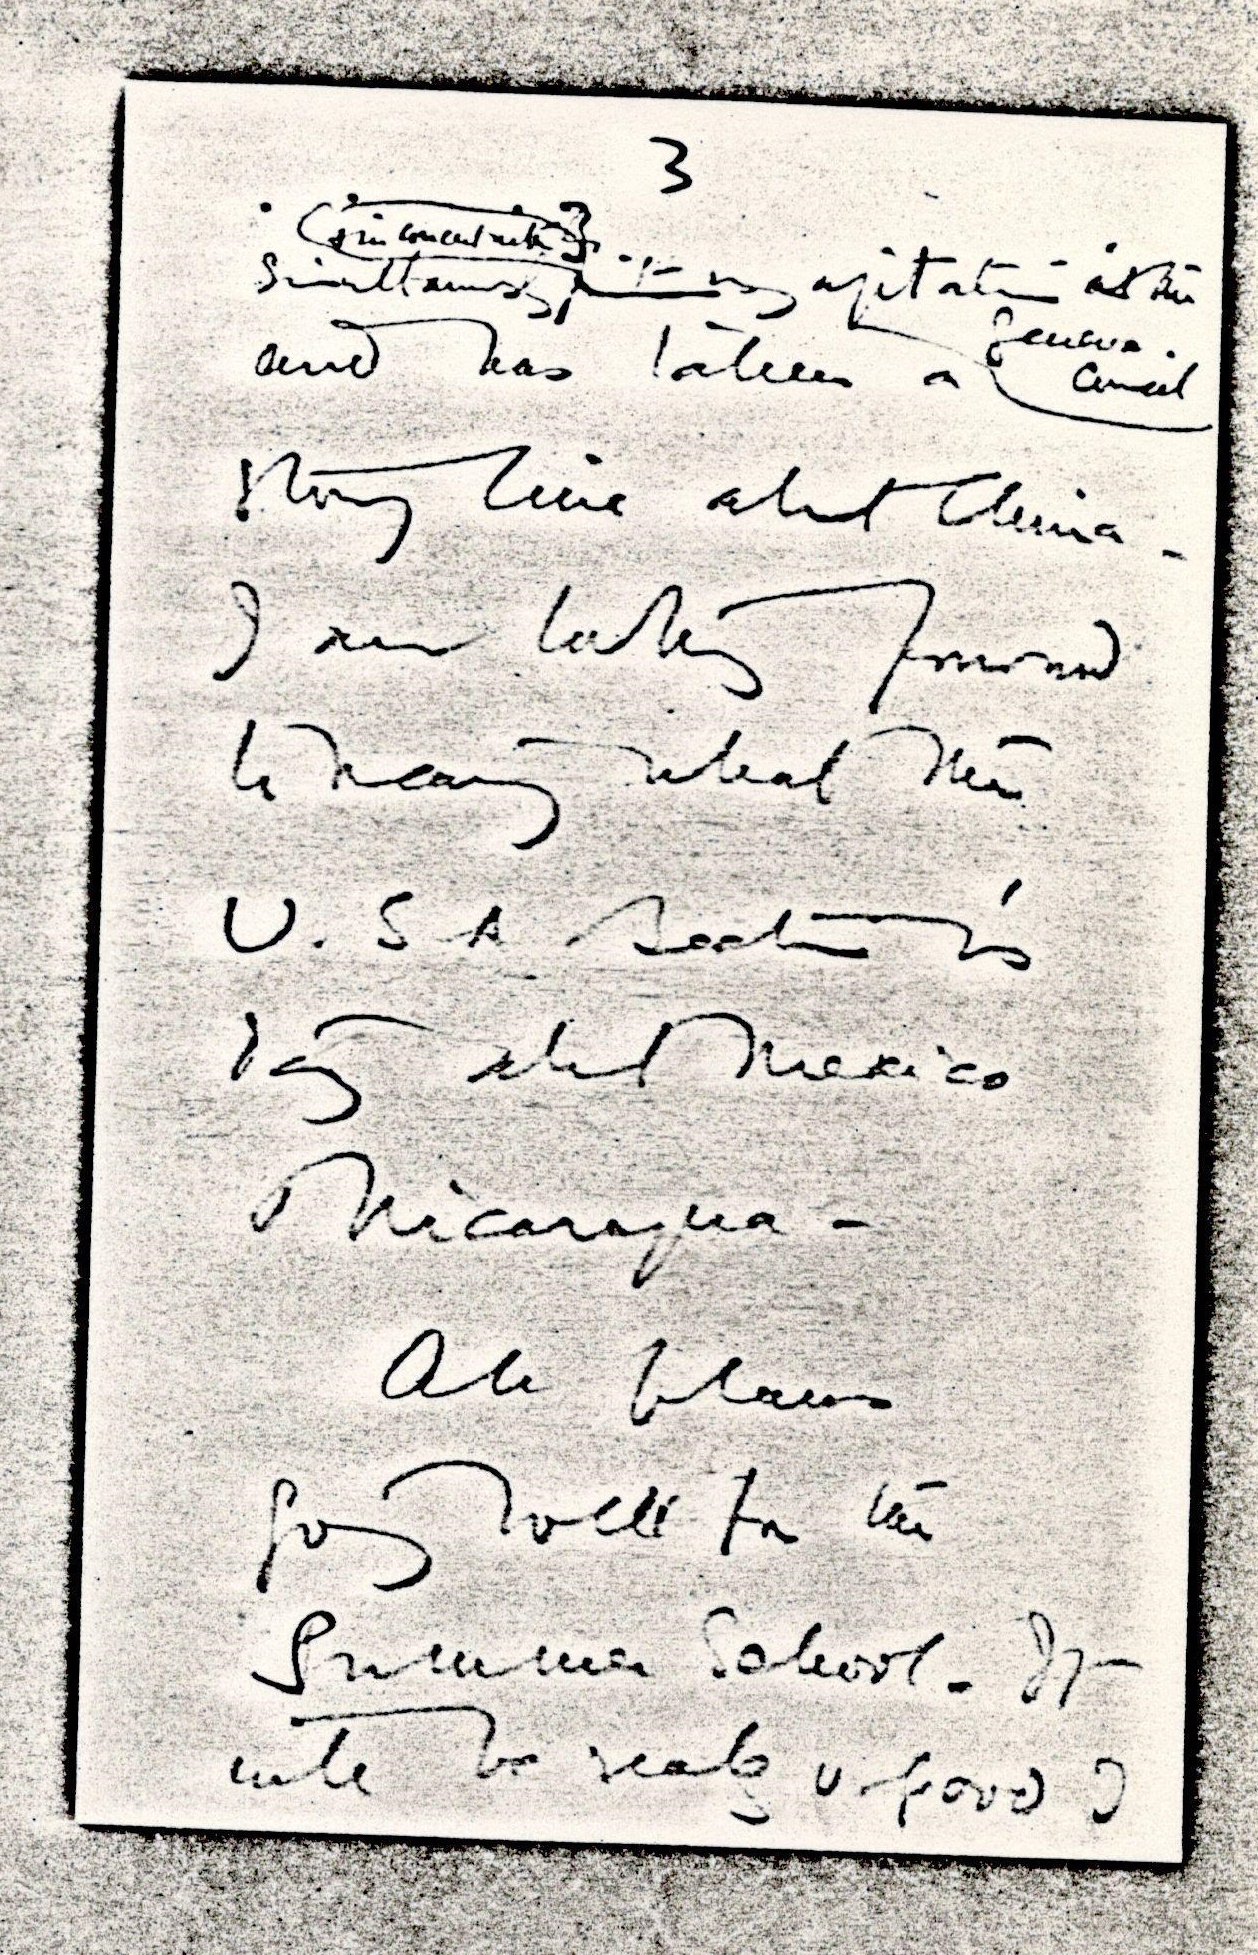 3
(in concert with
simultaneously, agitation as the
Geneva
and has taken a Council
strong line about China -
I am looking forward
to hearing what the
U. S A Section is
saying about Mexico
& Nicaragua -
All plans
going well for the
Summer School - It
will be really v. good I